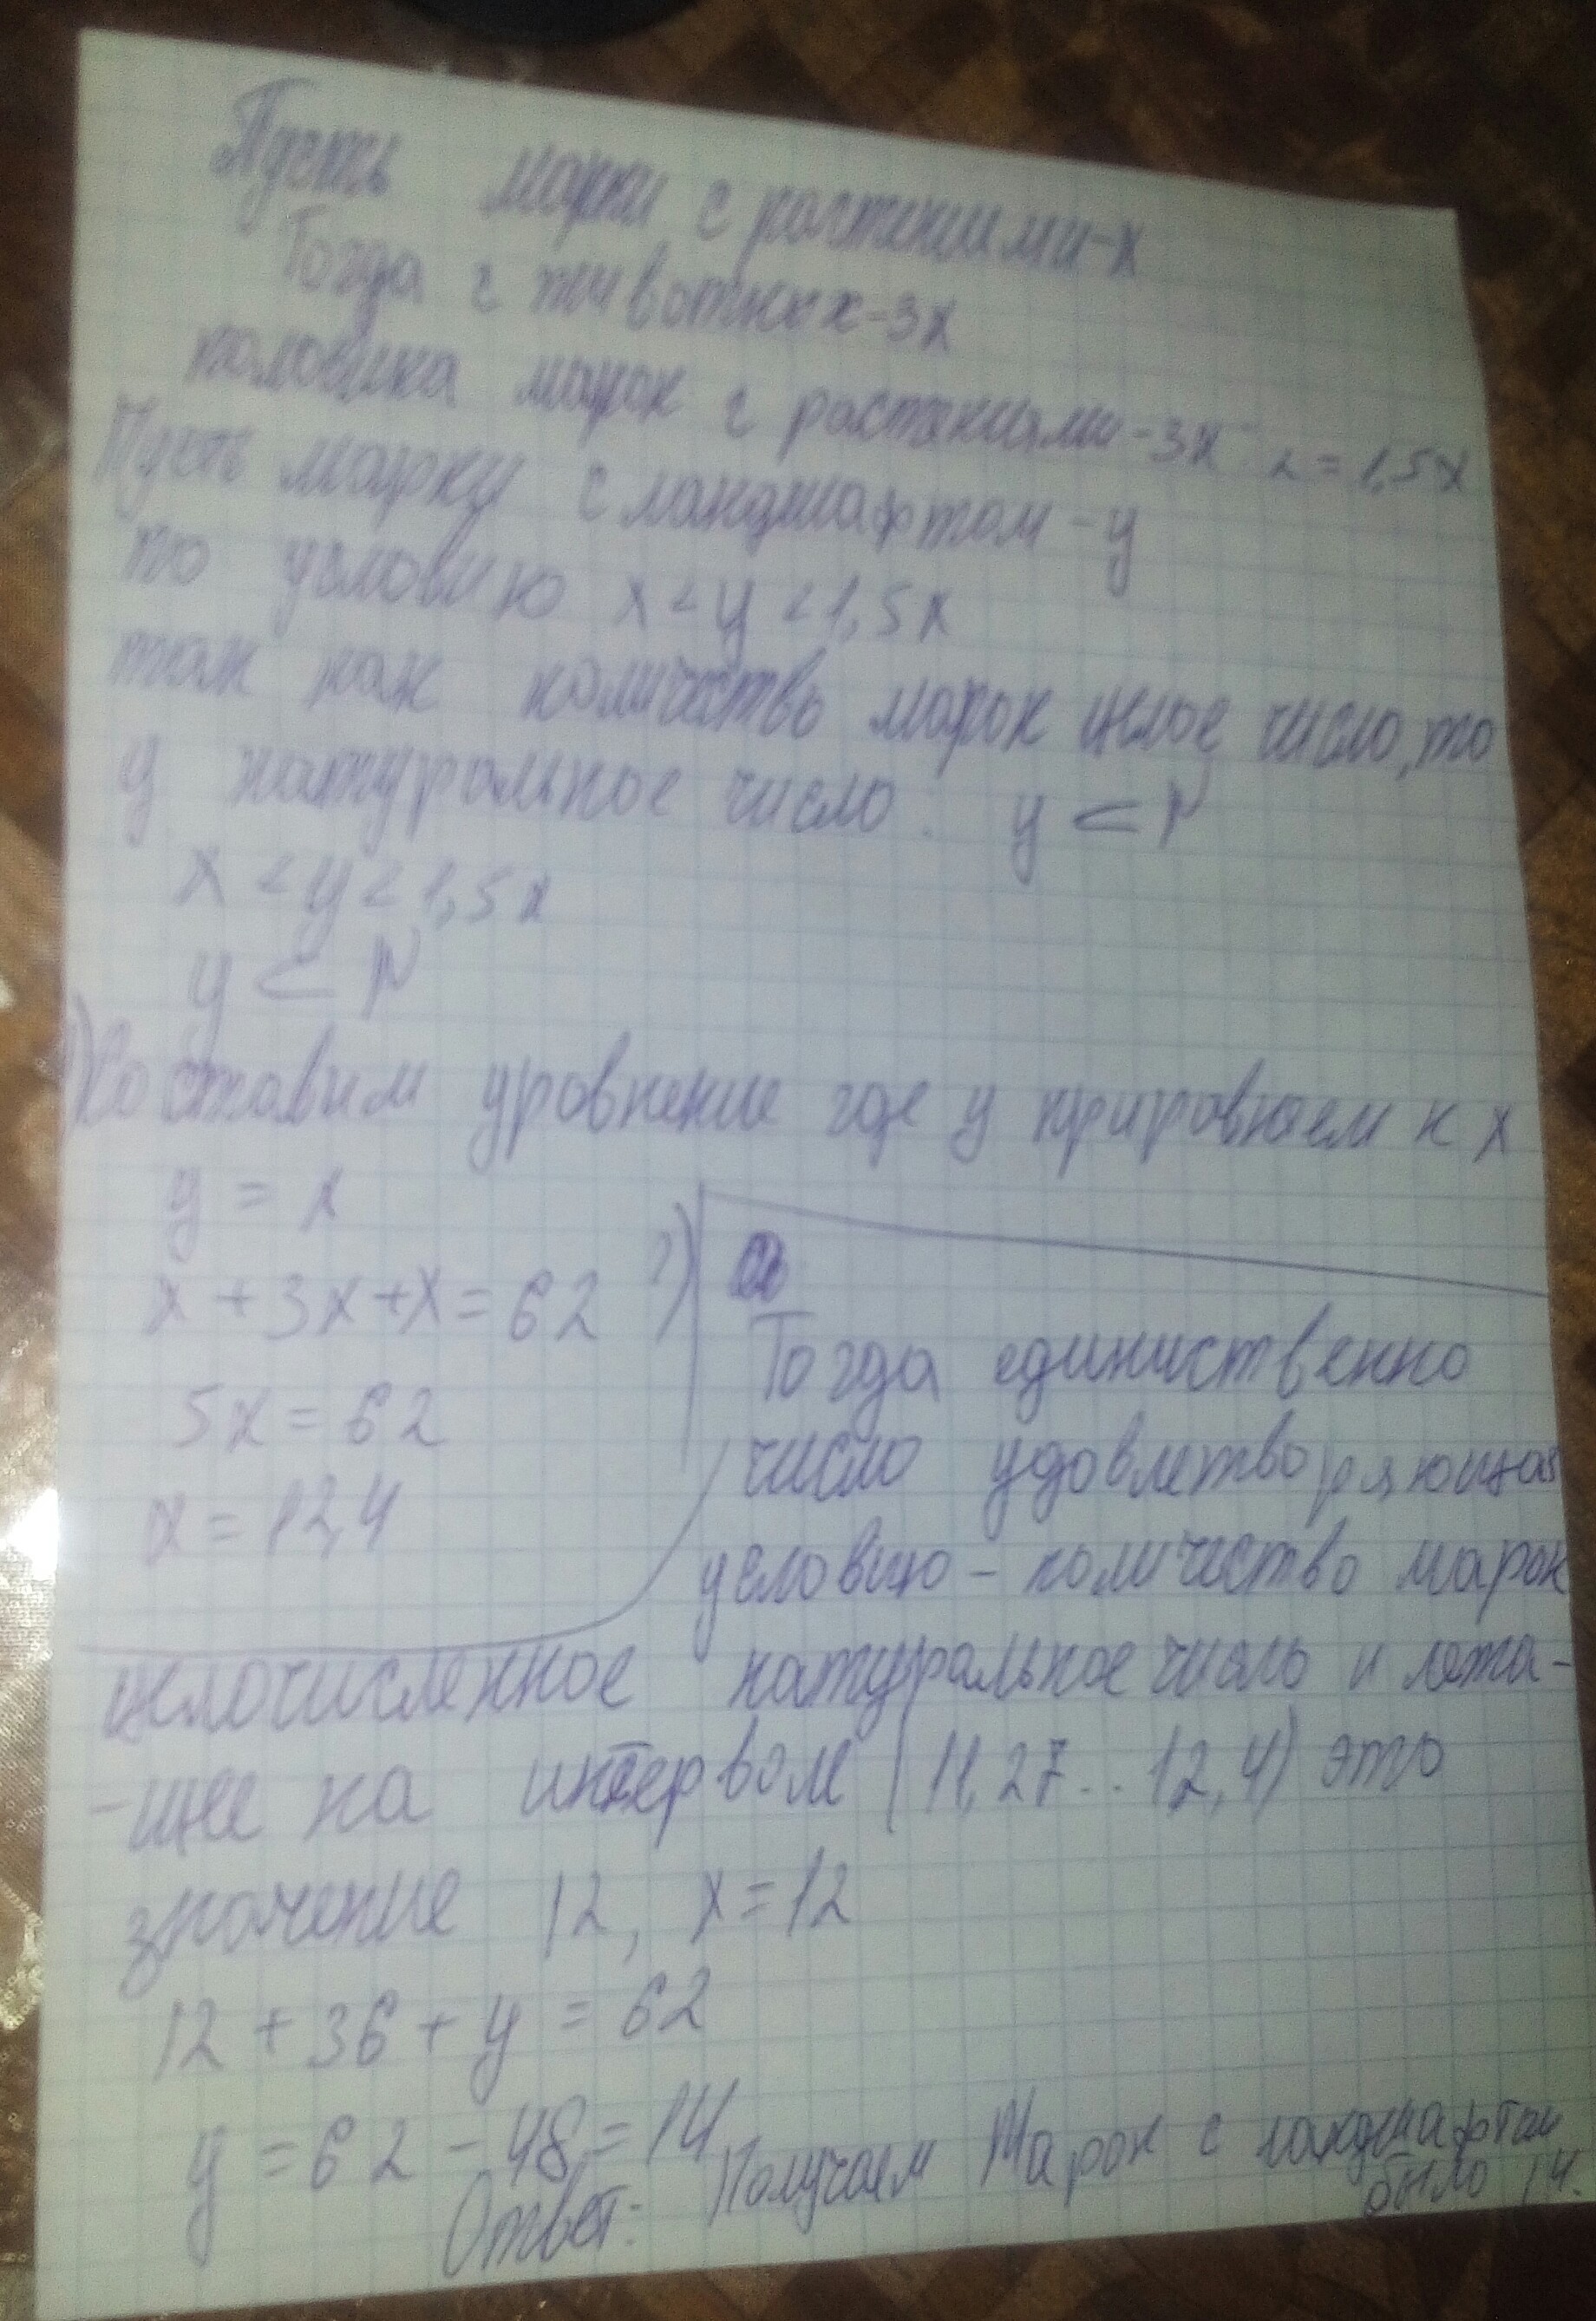 Пусть марки с растениями-x
Тогда с животных-3x
половина марок с растениями-3x : 2 = 1,5x
Пусть марки с ландшафтом-y
по условию x < y < 1,5x
так как количество марок целое число, то
y натуральное число: y ⊂ N
x < y < 1,5x
y ⊂ N
1) Составим уровнение где y прировняем к x
y = x
x + 3x + x = 62
5x = 62
x = 12,4
2)
Тогда единиственно
число удовлетворяющая
условию - количиство марок
целочисленное натуральное число и лежа-
-щее на интервом (11,27.. 12,4) это
значение 12, x = 12
12 + 36 + y = 62
y = 62 - 48 = 14
Ответ: Получаем Марок с ландшафтом
было 14.